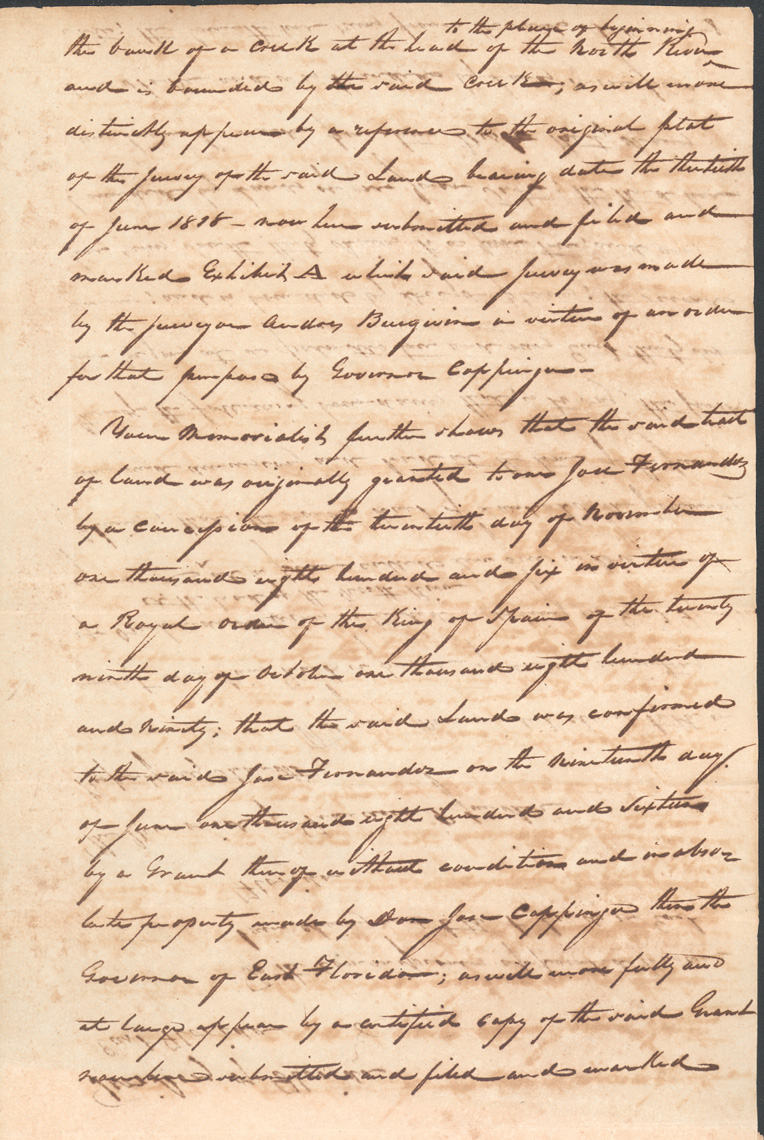 to the place of beginning
the bank of a creek at the head of the North River
and is bounded by the said Creek; as will more
distinctly appear by a reference to the original plat
of the survey of the said Land bearing date the thirtieth
of June 1818 - now here submitted and filed and
marked Exhibit A which said survey was made
by the surveyor Andres Burgevin in virtue of an order
for that purpose by Governor Coppinger -
Your Memorialist further shows that the said tract
of land was originally granted to one Jose Fernandez
by a concession of the twentieth day of November
one thousand eight hundred and six in virtue of
a Royal order of the King of Spain of the twenty
ninth day of October one thousand eight hundred
and Ninety; that the said Land was confirmed
to the said Jose Fernandez on the Nineteenth day
of June one thousand eight hundred and Sixteen
by a Grant thereof without condition and in abso=
lute property made by Don Jose Coppinger then the
Governor of East Florida; as will more fully and
at large appear by a certified copy of the said Grant
now here submitted and filed and marked